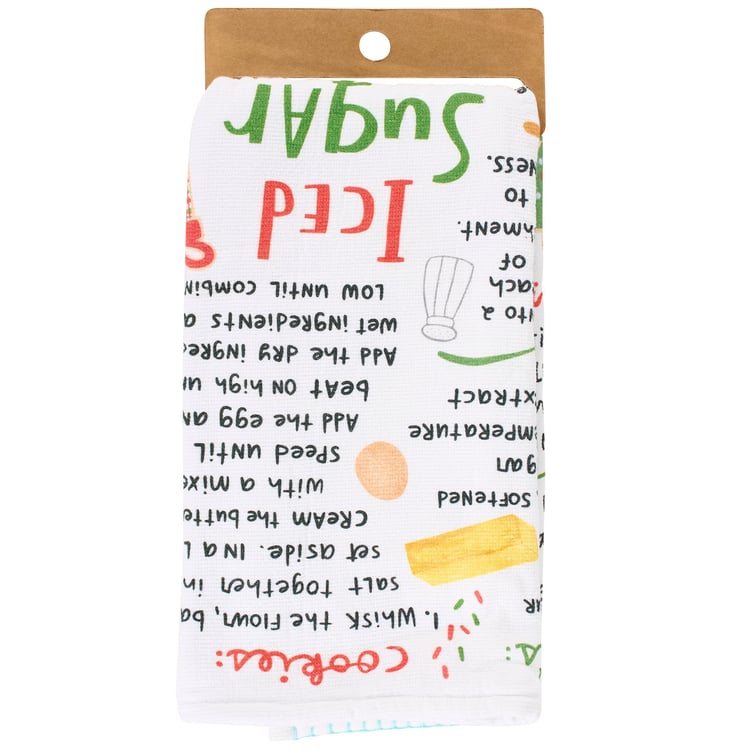 cookies:
1. Whisk the flour, ba
salt together in
set aside. In a l
Cream the butte
with a mixe
speed until
Add the egg an
beat on high un
Add the dry ingre
wet ingredients a
low until combin
Iced
Sugar
s:
AR
, softened
gar
mperature
xtract
ito 2
each
of
hment.
to
ness.